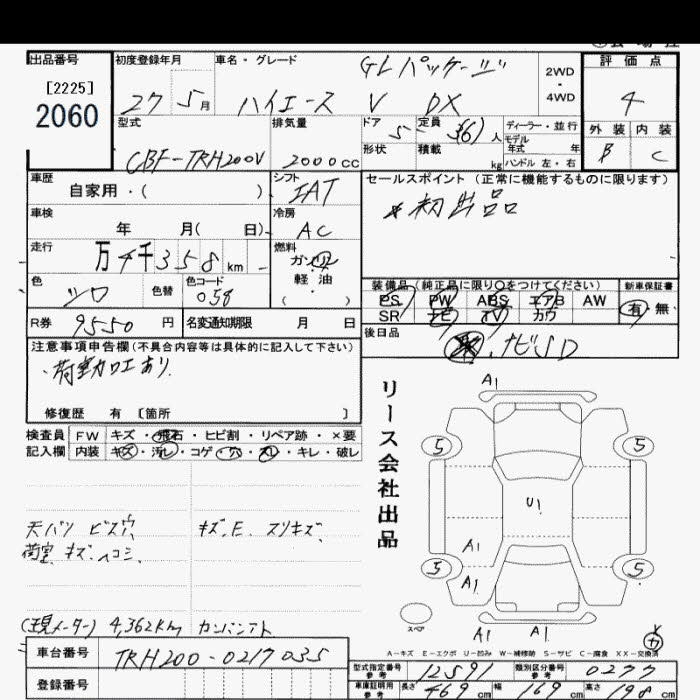 出品番号 初度登録年月 車名・グレード GLパッケージ 2WD・4WD 評価点
[2225]
2060
27 5月 ハイエース V DX 4
型式 排気量 ドア 5 定員 3(6)人 ディーラー・並行 外装 内装
形状 積載 kg モデル年式 年 B C
CBF-TRH200V 2000cc ハンドル 左・右
車歴 シフト セールスポイント (正常に機能するものに限ります)
自家用・( ) IAT
*初出品
車検 冷房
年 月( 日) AC
走行 燃料
万4千358km ガソリン
色 色替 色コード 軽・油
シロ 058 ( )
装備品 (純正品に限り○をつけてください) 新車保証書
PS PW ABS エアB AW 有・無
SR ナビ TV カワ
R券 9550円 名変通知期限 月 日
後日品
ナビSD
注意事項申告欄(不具合内容等は具体的に記入して下さい)
・荷室加工あり.
修復歴 有 [箇所 ]
リース会社出品
検査員 FW キズ・飛石・ヒビ割・リペア跡・×要
記入欄 内装 キズ・汚レ・コゲ・穴・スレ・キレ・破レ
A1
5 5
U1
天バリ ビス穴、 キズ.E. スリキズ、
荷室 キズ.ヘコミ、
A1
5 A1 5
スペア
A1 A1
(現メーター) 4,362Km カンバンアト
A-キズ E-エクボ U-凹み W-補修跡 S-サビ C-腐食 XX-交換済
車台番号 TRH200-0217035
登録番号
型式指定番号 参考 12591 類別区分番号 参考 0277
車庫証明用 参考 長さ 469cm 幅 169cm 高さ 198cm